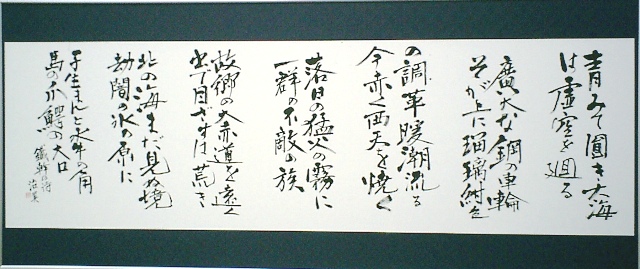 青みて圓き大海
は虚空を廻る
廣大な鋼の車輪
そが上に瑠璃紺
の調革暖潮流る
今赤く西天を焼く
落日の猛火の霧に
一群の不敵の族
故郷の大赤道を遠く
出で目ざすは荒き
北の海まだ見ぬ境
劫闇の氷の原に
子生まんと水牛の角
馬の爪鰐の大口
鐵幹の詩